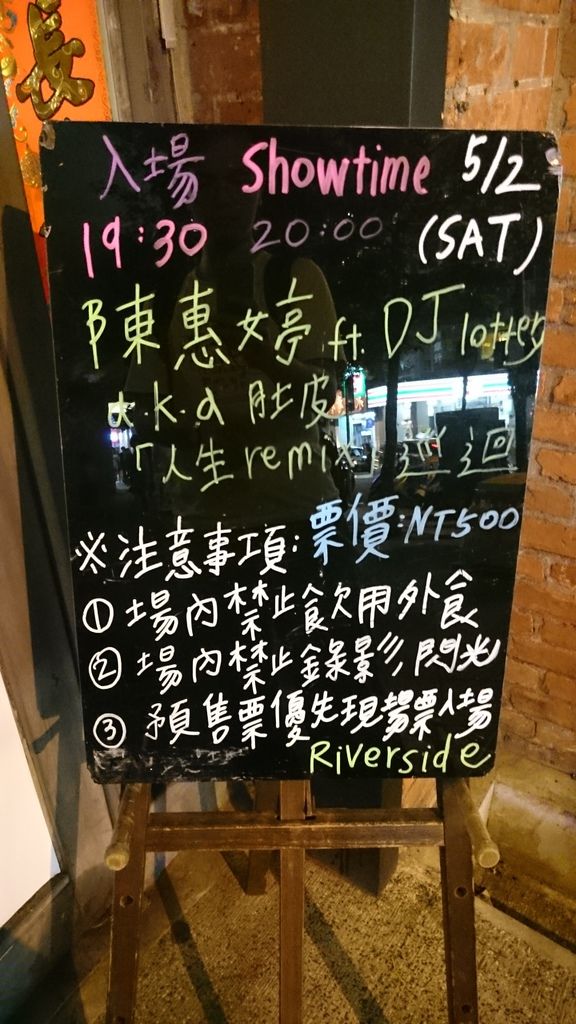 長
入場 Showtime 5/2
19:30 20:00 (SAT)
陳惠婷 ft. DJ lottery
a.k.a 肚皮
「人生remix」巡迴
※注意事項: 票價:NT500
① 場內禁止飲用外食
② 場內禁止錄影閃光
③ 預售票優先現場票入場
Riverside